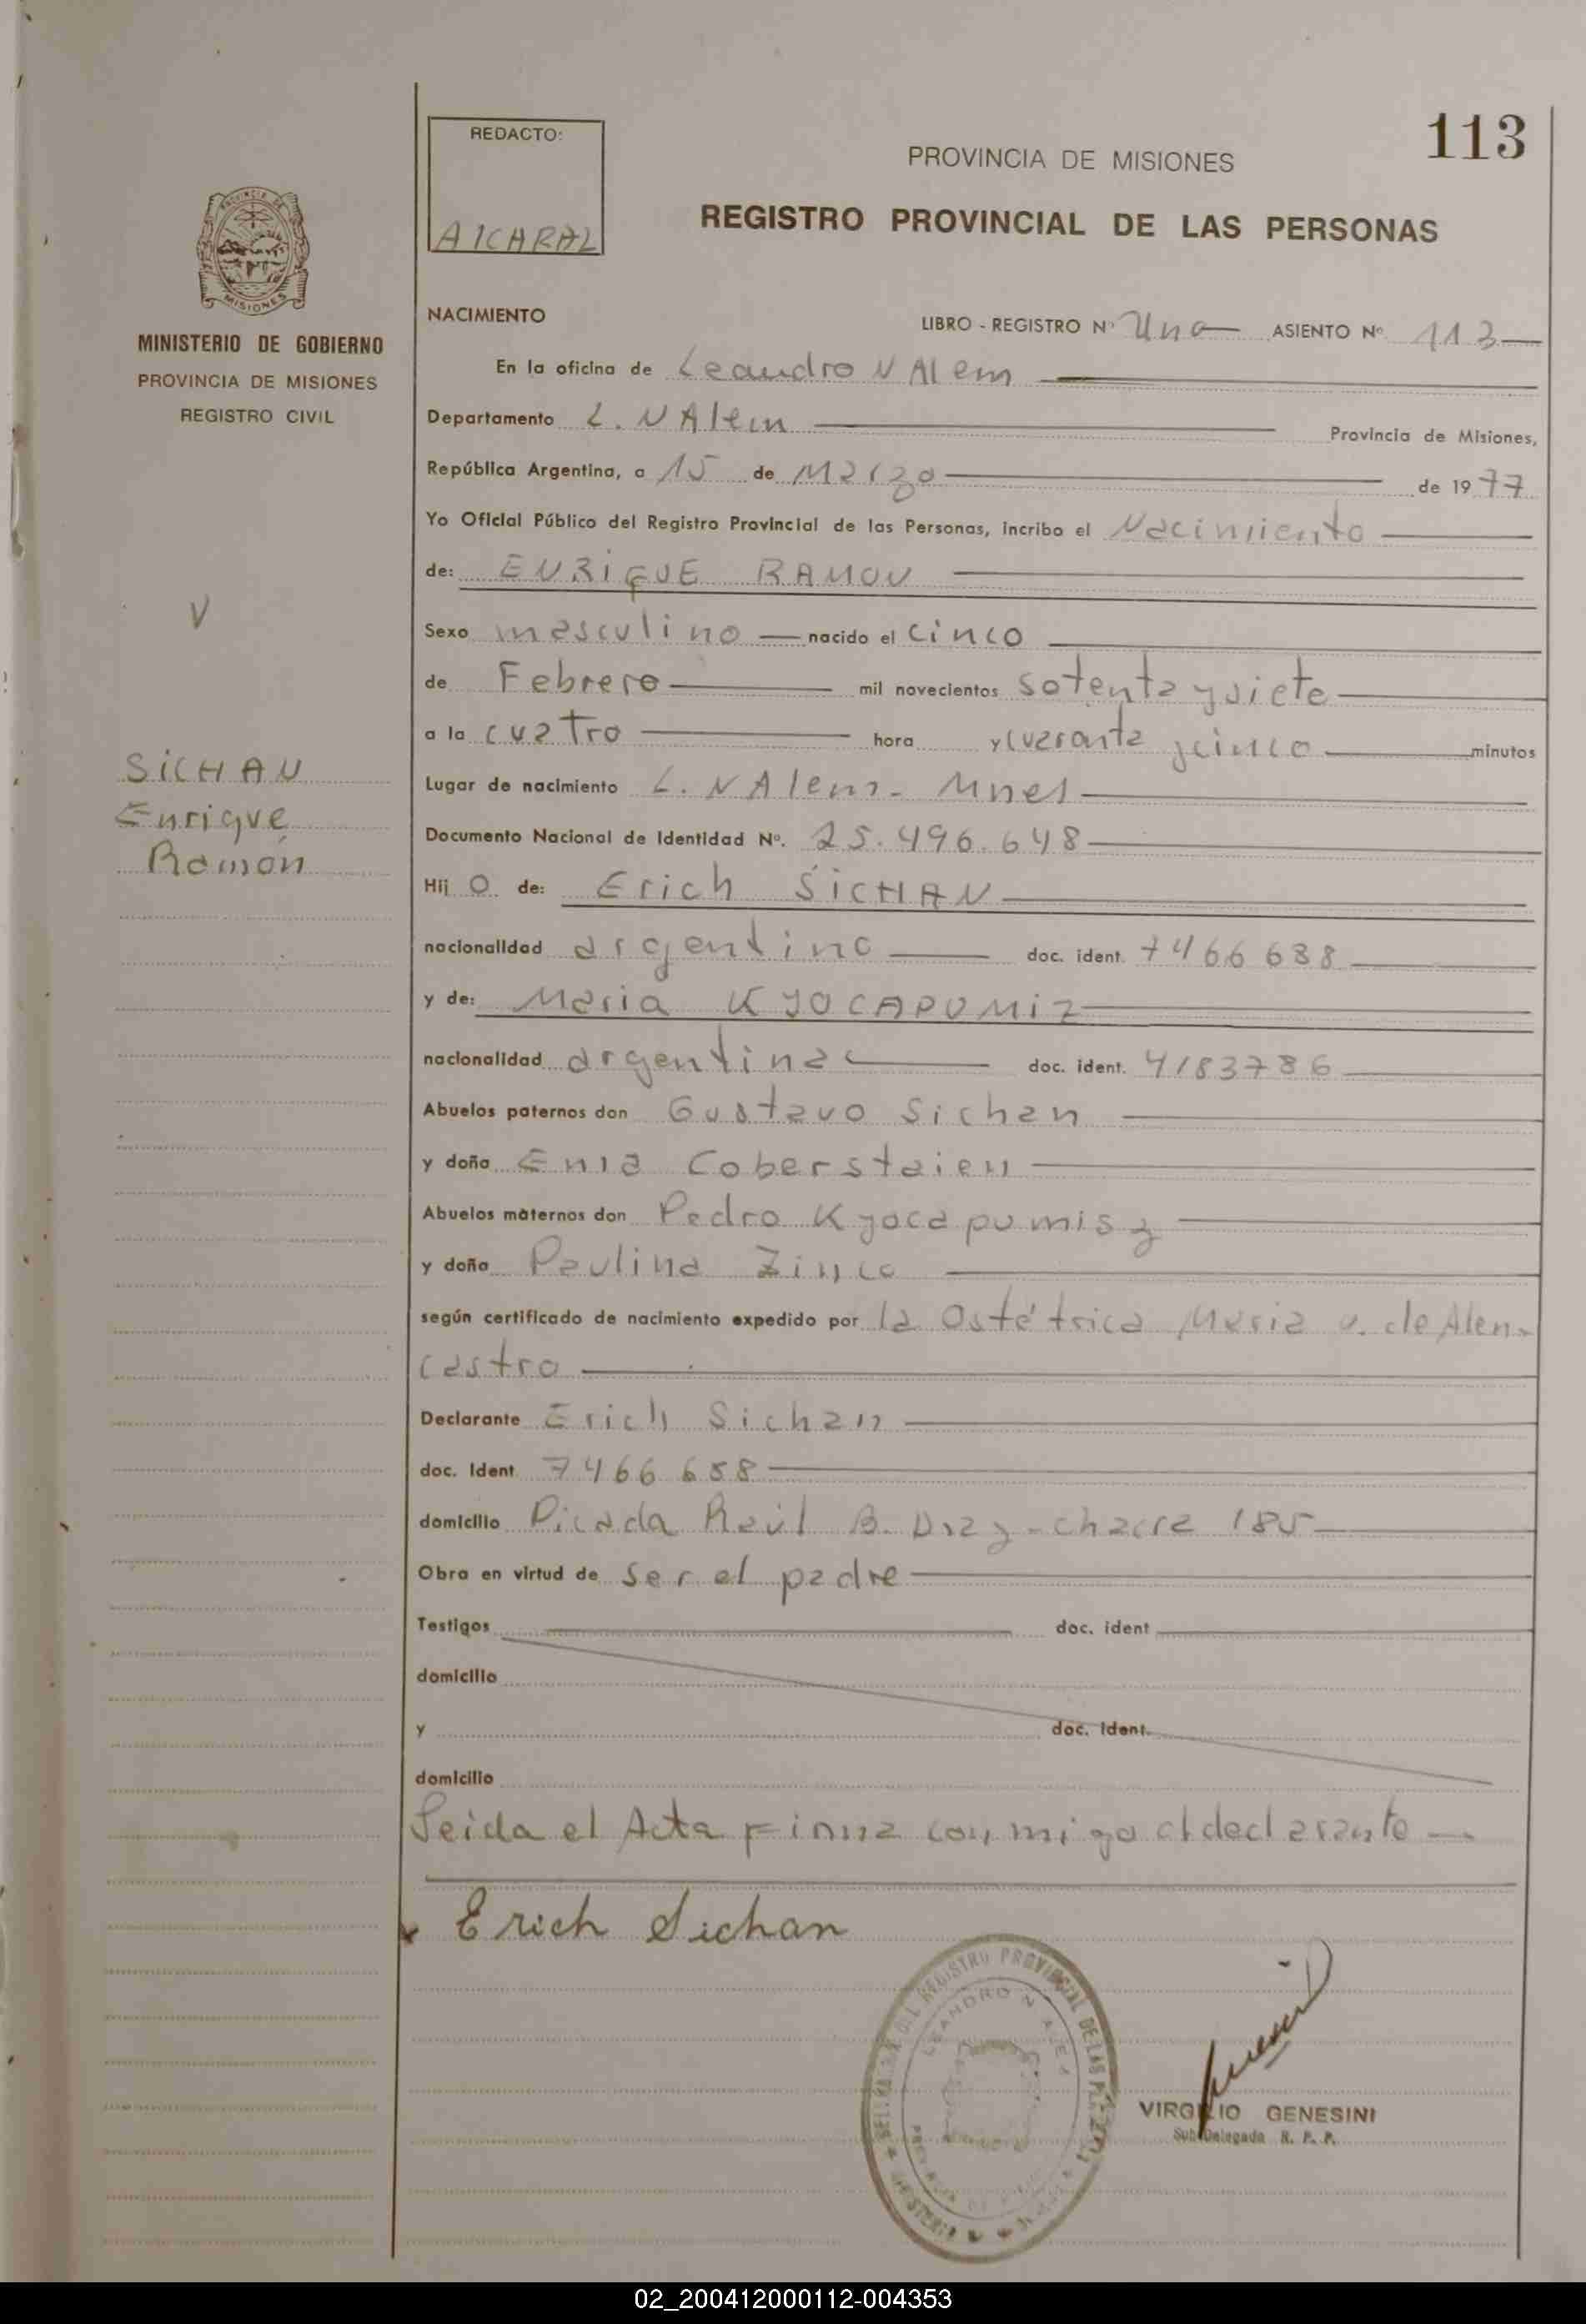 113
REDACTO:
AICARAL
PROVINCIA DE MISIONES
REGISTRO PROVINCIAL DE LAS PERSONAS
MINISTERIO DE GOBIERNO
PROVINCIA DE MISIONES
REGISTRO CIVIL
V
SICHAN
Enrique
Ramón
NACIMIENTO LIBRO - REGISTRO Nº Uno ASIENTO Nº 113
En la oficina de Leandro N Alem
Departamento L. N Alem Provincia de Misiones,
República Argentina, a 15 de Marzo de 1977
Yo Oficial Público del Registro Provincial de las Personas, incribo el Nacimiento
de: ENRIQUE RAMON
Sexo masculino nacido el cinco
de Febrero mil novecientos setenta y siete
a la cuatro hora y cuarenta y cinco minutos
Lugar de nacimiento L. N Alem - Mnes
Documento Nacional de Identidad Nº. 25.496.648
Hij o de: Erich SICHAN
nacionalidad argentino doc. ident. 7466688
y de: Maria KYOCAPUMIZ
nacionalidad argentina doc. ident. 4183786
Abuelos paternos don Gustavo Sichan
y doña Ema Coberstaien
Abuelos maternos don Pedro Kyocapumisz
y doña Paulina Zinco
según certificado de nacimiento expedido por la Ostétrica Maria v. de Alen-
castro
Declarante Erich Sichan
doc. Ident 7466688
domicilio Picada Raúl B. Diaz - chacra 185
Obra en virtud de ser el padre
Testigos doc. ident
domicilio
y doc. Ident.
domicilio
Leida el Acta Firma con migo el declarante
Erich Sichan
REGISTRO PROVINCIAL DE LAS
LEANDRO N. ALEM
VIRGILIO GENESINI
Sub Delegado R. P. P.
02_200412000112-004353